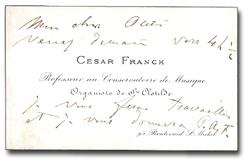 Mon cher Ami
Venez demain vers 4h ½
CESAR FRANCK
Professeur au Conservatoire de Musique,
Organiste de Ste Clotilde
je vous ferai travailler
et je vous donnerai
95, Boulevard St. Michel